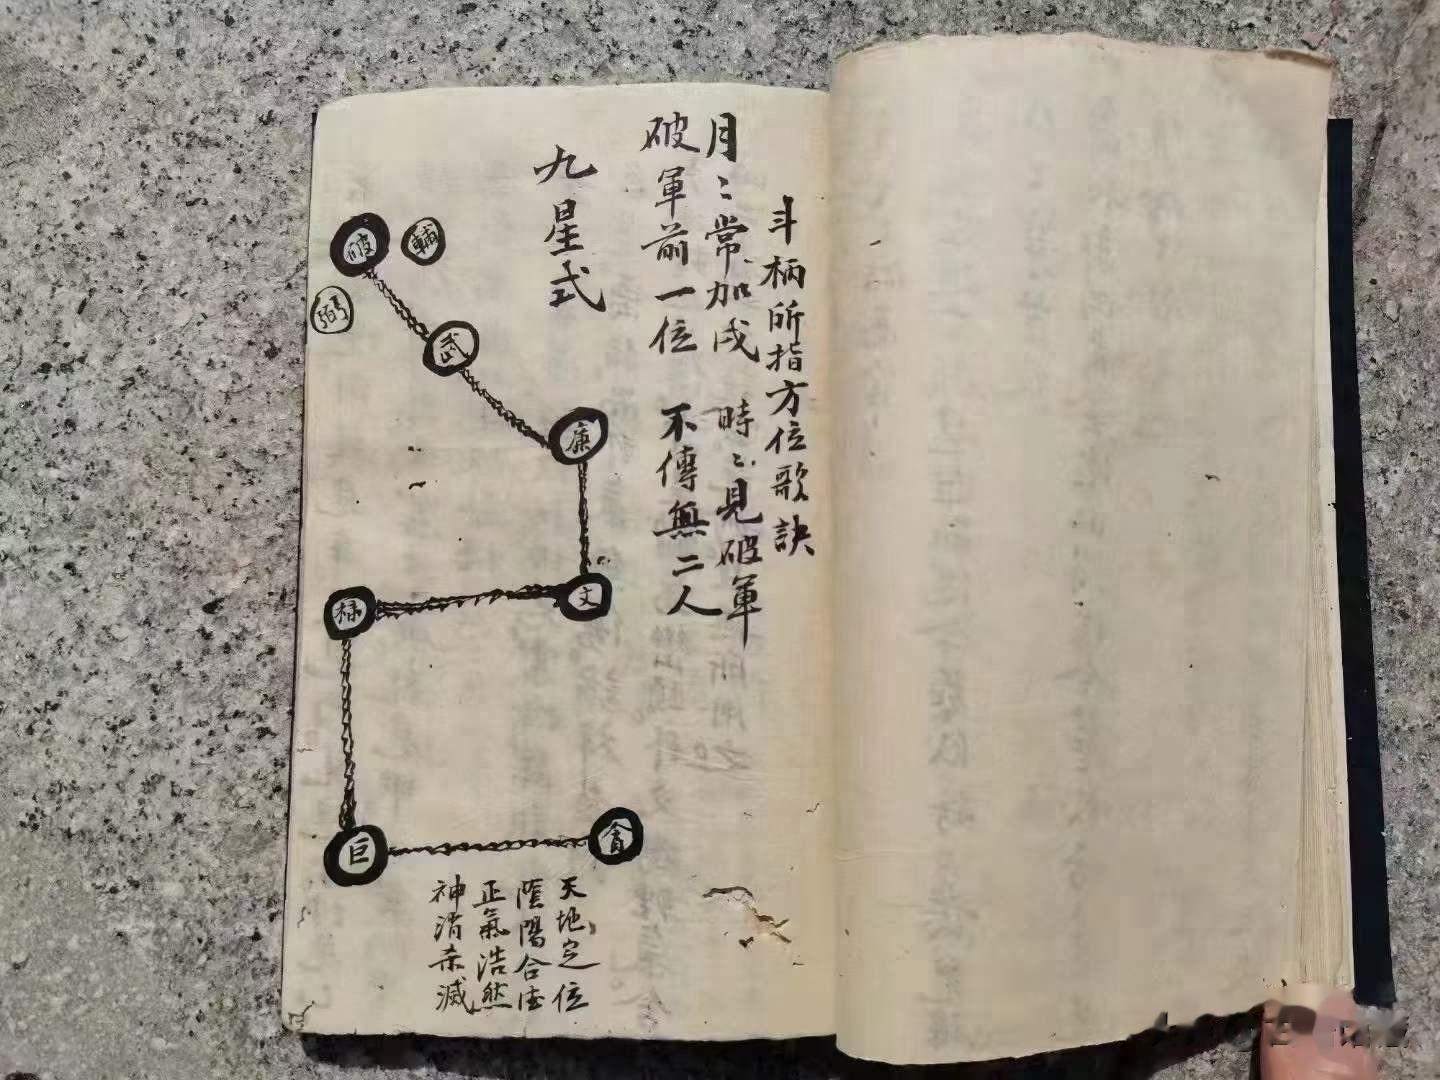 斗柄所指方位歌訣
月〻常加戌 時〻見破軍
破軍前一位 不傳無二人
九星式
輔
破
弼
武
廉
文
禄
巨
貪
天地定位
陰陽合法
正氣浩然
神消杀滅